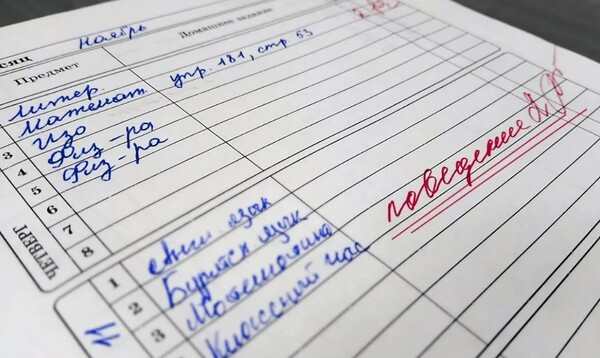 сяц Ноябрь
Предмет Домашнее задани
Литер.
Математ. упр. 181, стр 53
3 Изо
4 Физ-ра
5 Физ-ра
6
7
8
поведение 2
ЧЕТВЕРГ
11
1 Англ. язык
2 Бурятск язык
3 Математика
Классный час